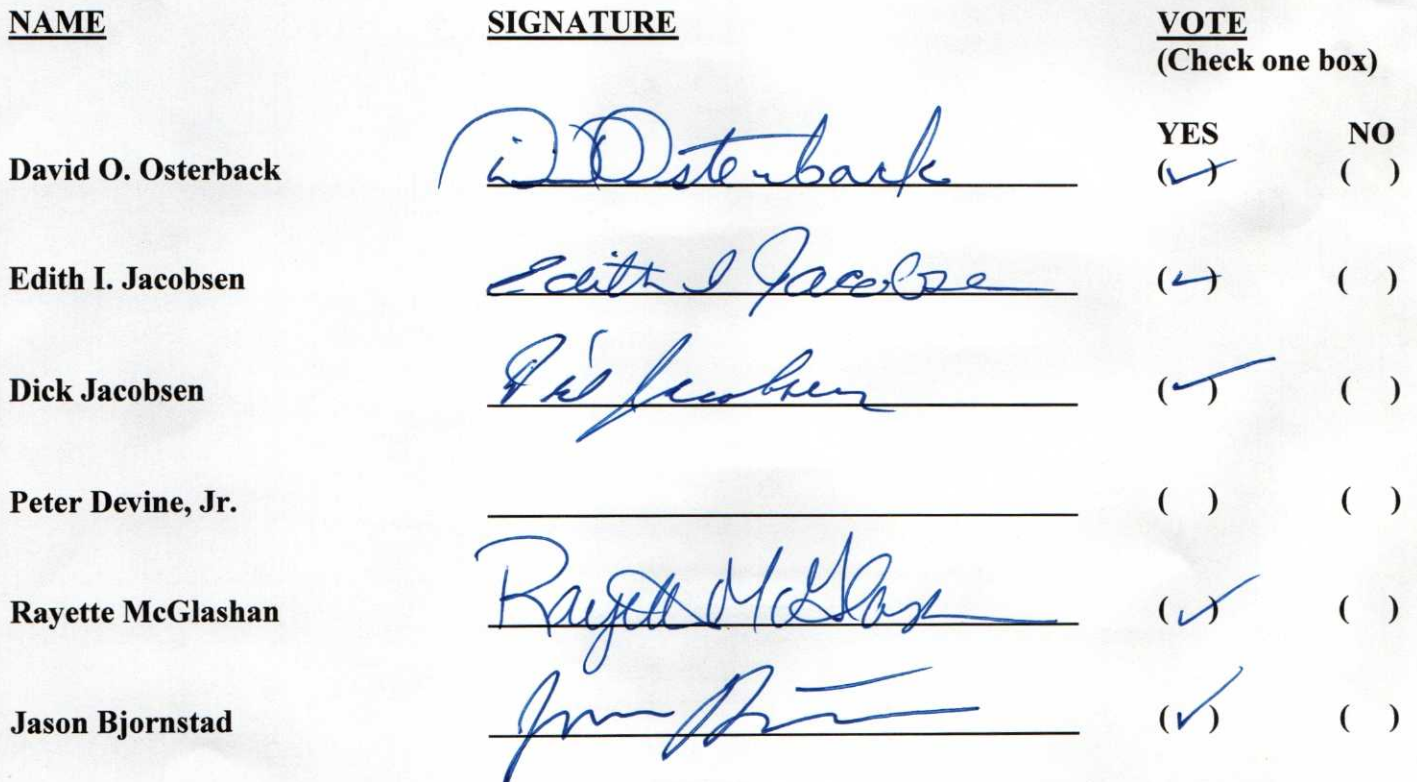 NAME SIGNATURE VOTE
(Check one box)
YES NO
David O. Osterback D Osterback (✓) ( )
Edith I. Jacobsen Edith I Jacobsen (✓) ( )
Dick Jacobsen Dick Jacobsen (✓) ( )
Peter Devine, Jr. ( ) ( )
Rayette McGlashan Rayette McGlashan (✓) ( )
Jason Bjornstad (✓) ( )